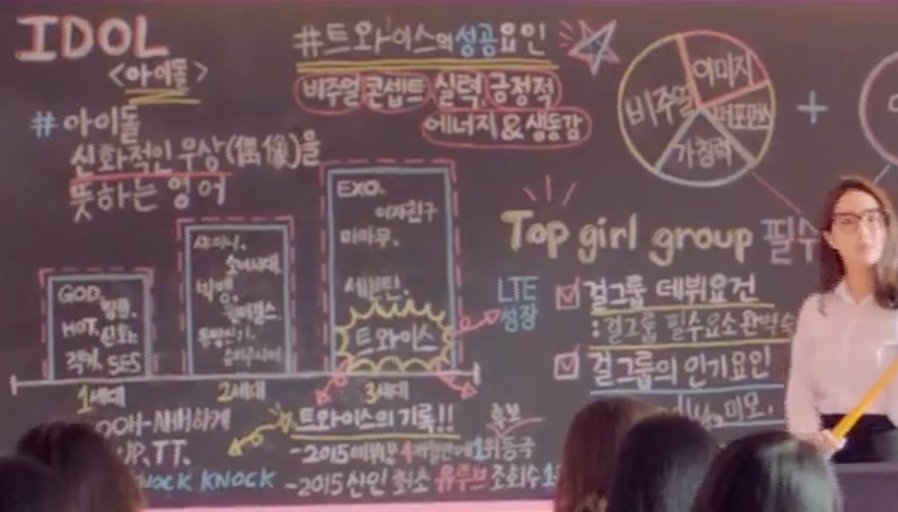 IDOL
<아이돌>
#아이돌
신화적인 우상(偶像)을
뜻하는 영어
#트와이스의 성공요인
비주얼 콘셉트 실력, 긍정적
에너지 & 생동감
비주얼
이미지
퍼포먼스
가창력
+
EXO.
여자친구
마마무.
세븐틴.
트와이스
샤이니.
소녀시대.
빅뱅.
원더걸스.
동방신기.
슈퍼주니어
GOD.
HOT.
신화.
젝키.
SES
1세대
2세대
3세대
LTE
성장
Top girl group 필수
걸그룹 데뷔요건
:걸그룹 필수요소 완벽
걸그룹의 인기요인
미모.
OOH-AHH하게
UP, TT,
KNOCK KNOCK
트와이스의 기록!!
-2015
1위등극
-2015 신인 최초 유튜브 조회수 1